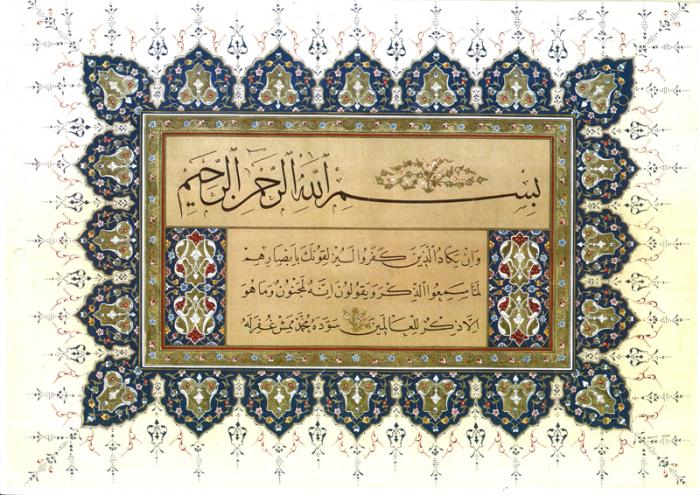 -8-
بِسْمِ اللهِ الرَّحْمنِ الرَّحِيمِ
وَاِنْ يَكَادُ الَّذِينَ كَفَرُوا لَيُزْلِقُونَكَ بِاَبْصَارِهِمْ
لَمَّا سَمِعُوا الذِّكْرَ وَيَقُولُونَ اِنَّهُ لَمَجْنُونٌ وَمَا هُوَ
اِلَّا ذِكْرٌ لِلْعَالَمِينَ سَوَّدَهُ مُحَمَّدْ غُفِرَلَهُ